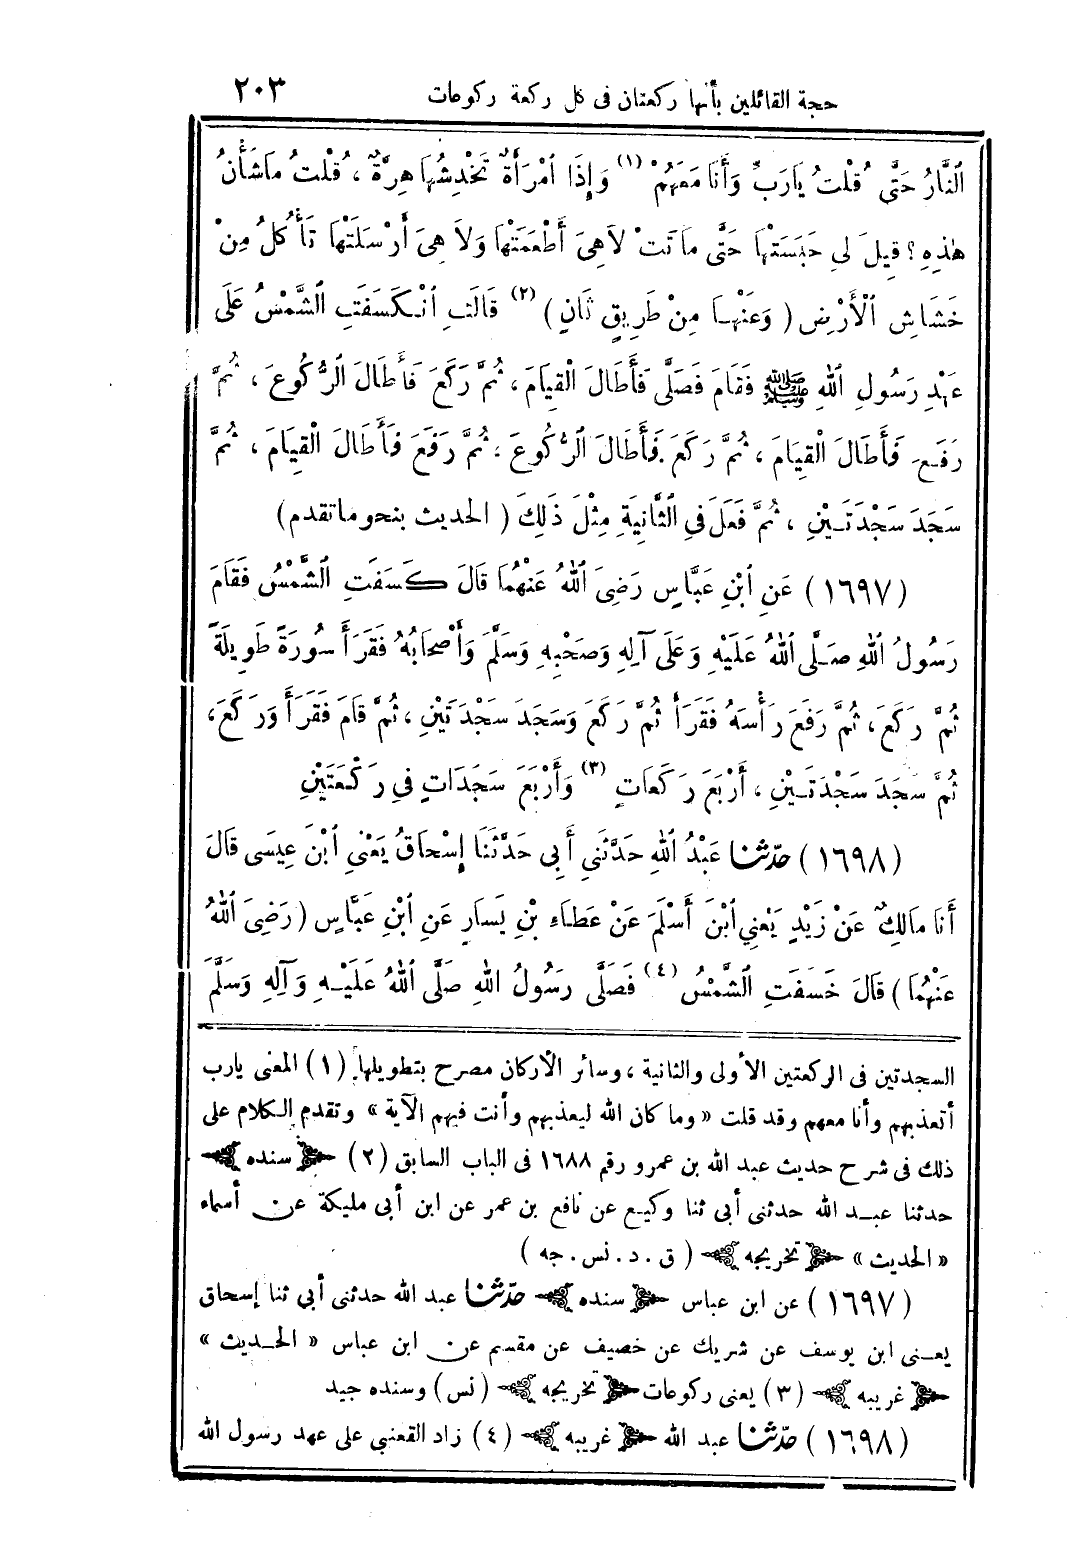 حجة القائلين بأنها ركعتان فى كل ركعة ركوعات ٢٠٣
ٱلنَّارُ حَتَّى قُلْتُ يَارَبِّ وَأَنَا مَعَهُمْ (١) وَإِذَا ٱمْرَأَةٌ تَخْدِشُهَا هِرَّةٌ ، قُلْتُ مَا شَأْنُ
هٰذِهِ ؟ قِيلَ لِي حَبَسَتْهَا حَتَّى مَاتَتْ لَا هِيَ أَطْعَمَتْهَا وَلَا هِيَ أَرْسَلَتْهَا تَأْكُلُ مِنْ
خَشَاشِ ٱلْأَرْضِ ( وَعَنْهَا مِنْ طَرِيقٍ ثَانٍ ) (٢) قَالَتِ ٱنْكَسَفَتِ ٱلشَّمْسُ عَلَى
عَهْدِ رَسُولِ ٱللهِ ﷺ فَقَامَ فَصَلَّى فَأَطَالَ الْقِيَامَ ، ثُمَّ رَكَعَ فَأَطَالَ ٱلرُّكُوعَ ، ثُمَّ
رَفَعَ فَأَطَالَ الْقِيَامَ ، ثُمَّ رَكَعَ فَأَطَالَ ٱلرُّكُوعَ ، ثُمَّ رَفَعَ فَأَطَالَ الْقِيَامَ ، ثُمَّ
سَجَدَ سَجْدَتَيْنِ ، ثُمَّ فَعَلَ فِي الثَّانِيَةِ مِثْلَ ذَلِكَ ( الحديث بنحو ما تقدم )
(١٦٩٧) عَنِ ٱبْنِ عَبَّاسٍ رَضِيَ ٱللهُ عَنْهُمَا قَالَ كَسَفَتِ ٱلشَّمْسُ فَقَامَ
رَسُولُ ٱللهِ صَلَّى ٱللهُ عَلَيْهِ وَعَلَى آلِهِ وَصَحْبِهِ وَسَلَّمَ وَأَصْحَابُهُ فَقَرَأَ سُورَةً طَوِيلَةً
ثُمَّ رَكَعَ ، ثُمَّ رَفَعَ رَأْسَهُ فَقَرَأَ ثُمَّ رَكَعَ وَسَجَدَ سَجْدَتَيْنِ ، ثُمَّ قَامَ فَقَرَأَ وَرَكَعَ ،
ثُمَّ سَجَدَ سَجْدَتَيْنِ ، أَرْبَعَ رَكَعَاتٍ (٣) وَأَرْبَعَ سَجَدَاتٍ فِي رَكْعَتَيْنِ
(١٦٩٨) حدّثنا عَبْدُ ٱللهِ حَدَّثَنِي أَبِي حَدَّثَنَا إِسْحَاقُ يَعْنِي ٱبْنَ عِيسَى قَالَ
أَنَا مَالِكٌ عَنْ زَيْدٍ يَعْنِي ٱبْنَ أَسْلَمَ عَنْ عَطَاءِ بْنِ يَسَارٍ عَنِ ٱبْنِ عَبَّاسٍ ( رَضِيَ ٱللهُ
عَنْهُمَا ) قَالَ خَسَفَتِ ٱلشَّمْسُ (٤) فَصَلَّى رَسُولُ ٱللهِ صَلَّى ٱللهُ عَلَيْهِ وَآلِهِ وَسَلَّمَ
السجدتين فى الركعتين الأولى والثانية ، وسائر الأركان مصرح بتطويلها (١) المعنى يارب
أتعذبهم وأنا معهم وقد قلت « وما كان الله ليعذبهم وأنت فيهم الآية » وتقدم الكلام على
ذلك فى شرح حديث عبد الله بن عمرو رقم ١٦٨٨ فى الباب السابق (٢) سنده
حدثنا عبد الله حدثنى أبى ثنا وكيع عن نافع بن عمر عن ابن أبى مليكة عن أسماء
« الحديث » تخريجه ( ق . د . نس . جه )
(١٦٩٧) عن ابن عباس سنده حدّثنا عبد الله حدثنى أبى ثنا إسحاق
يعنى ابن يوسف عن شريك عن خصيف عن مقسم عن ابن عباس « الحديث »
غريبه (٣) يعنى ركوعات تخريجه (نس) وسنده جيد
(١٦٩٨) حدّثنا عبد الله غريبه (٤) زاد القعنبي على عهد رسول الله